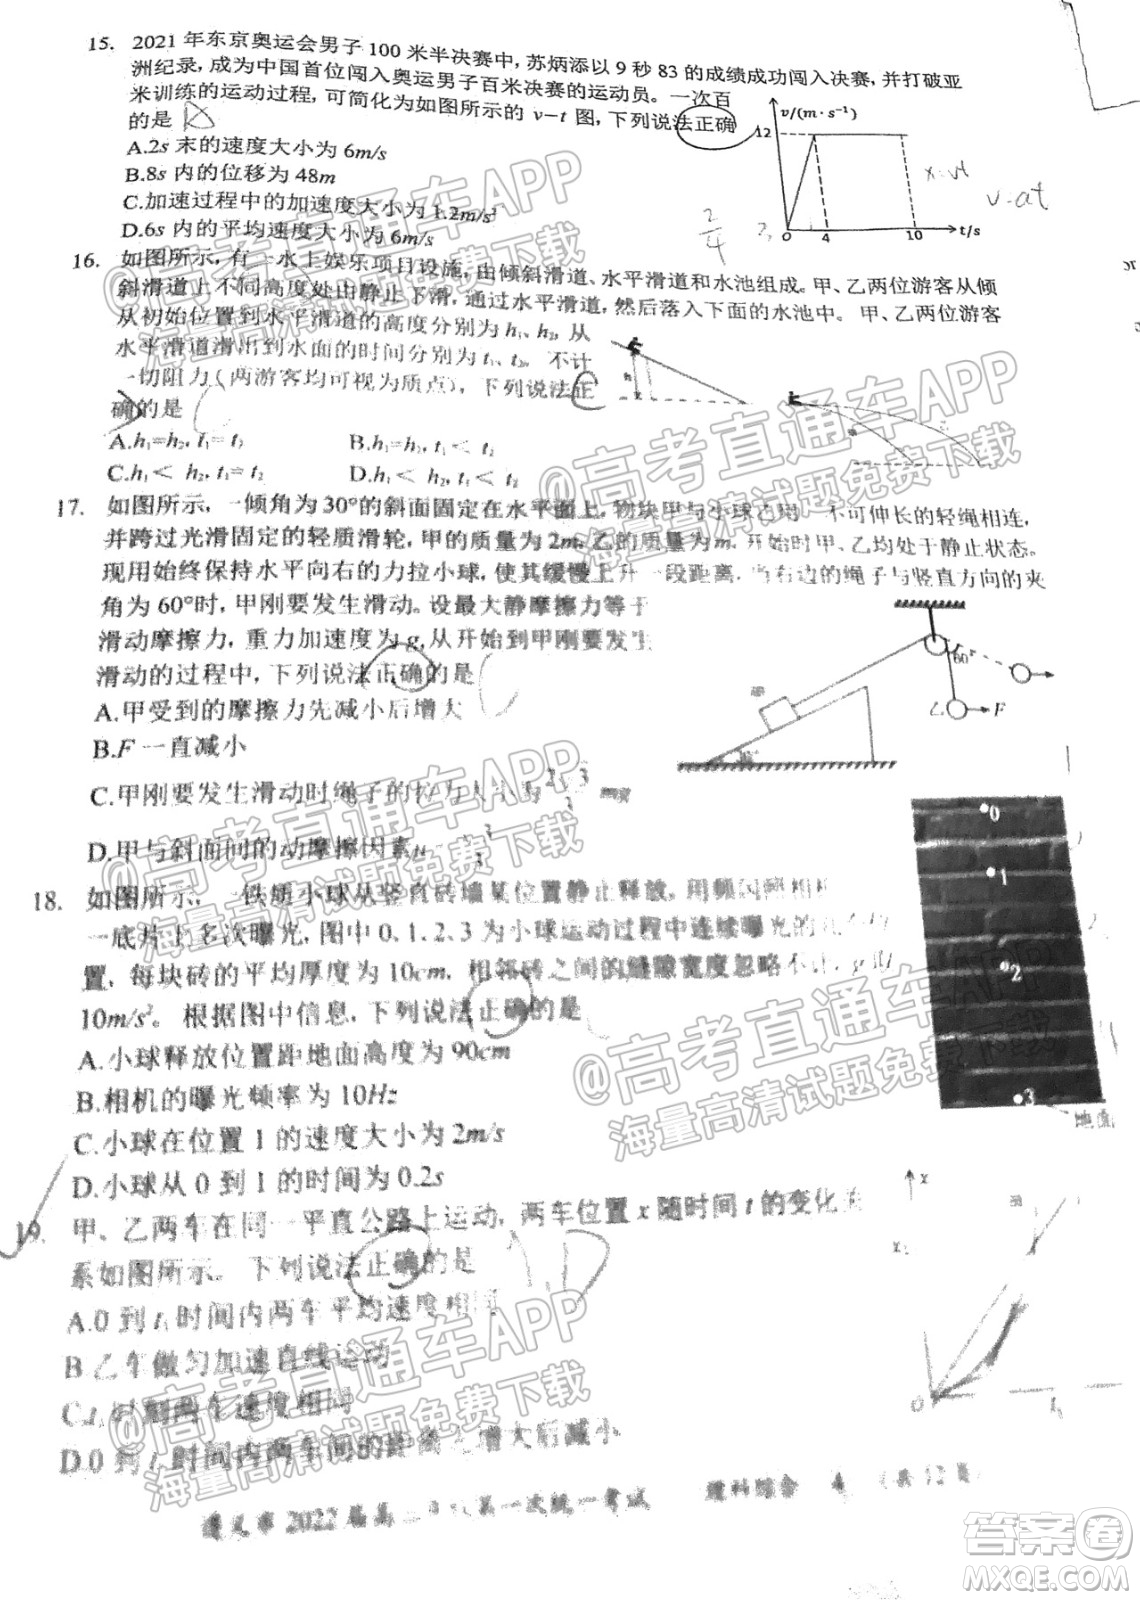 15. 2021年东京奥运会男子100米半决赛中，苏炳添以9秒83的成绩成功闯入决赛，并打破亚
洲纪录，成为中国首位闯入奥运男子百米决赛的运动员。一次百
米训练的运动过程，可简化为如图所示的 v-t 图，下列说法正确
的是
A.2s 末的速度大小为 6m/s
B.8s 内的位移为 48m
C.加速过程中的加速度大小为 1.2m/s²
D.6s 内的平均速度大小为 6m/s
v/(m·s⁻¹)
12
0 4 10 t/s
x=vt
v=at
2/4
16. 如图所示，有一水上娱乐项目设施，由倾斜滑道、水平滑道和水池组成。甲、乙两位游客从倾
斜滑道上不同高度处由静止下滑，通过水平滑道，然后落入下面的水池中。甲、乙两位游客
从初始位置到水平滑道的高度分别为 h₁、h₂，从
水平滑道滑出到水面的时间分别为 t₁、t₂。不计
一切阻力(两游客均可视为质点)，下列说法正
确的是
A.h₁=h₂, t₁= t₂ B.h₁=h₂, t₁< t₂
C.h₁< h₂, t₁= t₂ D.h₁< h₂, t₁< t₂
h
17. 如图所示，一倾角为30°的斜面固定在水平面上，物块甲与小球乙用一不可伸长的轻绳相连，
并跨过光滑固定的轻质滑轮，甲的质量为2m，乙的质量为m，开始时甲、乙均处于静止状态。
现用始终保持水平向右的力拉小球，使其缓慢上升一段距离，当右边的绳子与竖直方向的夹
角为60°时，甲刚要发生滑动。设最大静摩擦力等于
滑动摩擦力，重力加速度为g，从开始到甲刚要发生
滑动的过程中，下列说法正确的是
A.甲受到的摩擦力先减小后增大
B.F 一直减小
C.甲刚要发生滑动时绳子的拉力大小为 mg
D.甲与斜面间的动摩擦因素
60°
乙 F
18. 如图所示，一铁质小球从竖直砖墙某位置静止释放，用频闪照相
一底片上多次曝光，图中0、1、2、3为小球运动过程中连续曝光的
置，每块砖的平均厚度为10cm，相邻砖之间的缝隙宽度忽略不计，g取
10m/s²。根据图中信息，下列说法正确的是
A.小球释放位置距地面高度为90cm
B.相机的曝光频率为10Hz
C.小球在位置1的速度大小为2m/s
D.小球从0到1的时间为0.2s
0
1
2
3
地面
19. 甲、乙两车在同一平直公路上运动，两车位置x随时间t的变化关
系如图所示。下列说法正确的是
A.0 到 t₁ 时间内两车平均速度相同
B 乙车做匀加速直线运动
C.t₁ 时刻两车速度相同
D.0 到 t₁ 时间内两车间的距离先增大后减小
x
甲
x₁
O t₁
遵义市2022届高三年级第一次统一考试 理科综合 4 (共12页)
@高考直通车APP
海量高清试题免费下载
@高考直通车APP
海量高清试题免费下载
@高考直通车APP
海量高清试题免费下载
@高考直通车APP
海量高清试题免费下载
@高考直通车APP
海量高清试题免费下载
答案卷
MXQE.COM